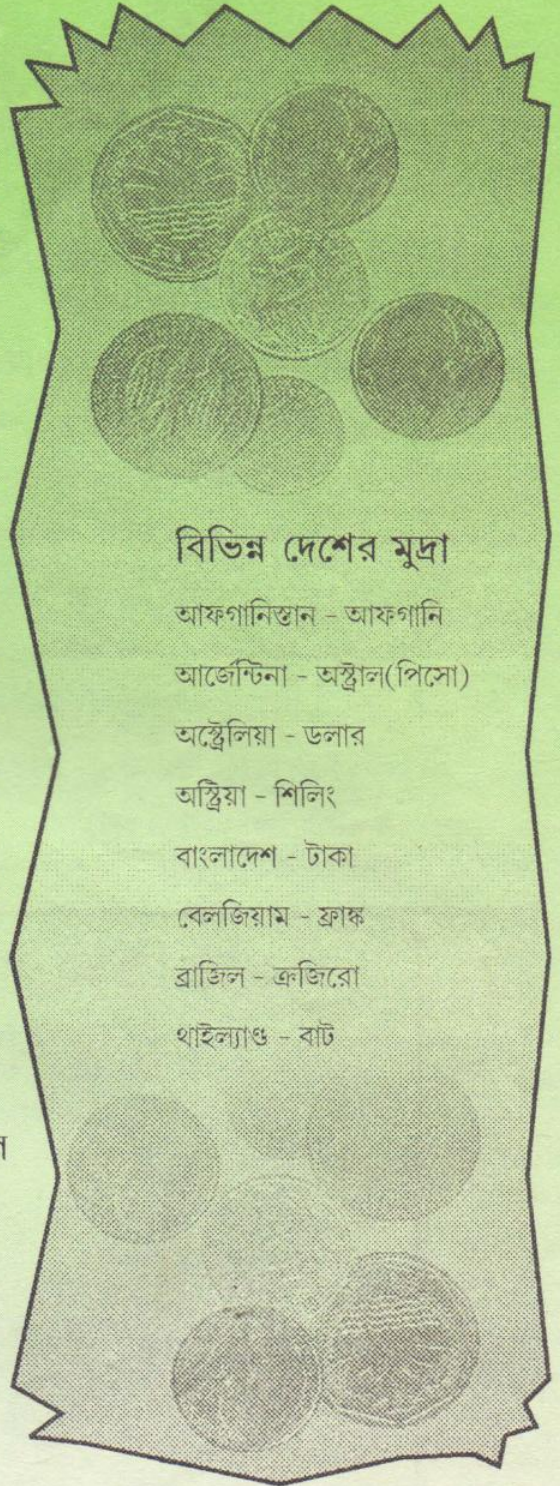 বিভিন্ন দেশের মুদ্রা
আফগানিস্তান - আফগানি
আর্জেন্টিনা - অস্ট্রাল(পিসো)
অস্ট্রেলিয়া - ডলার
অস্ট্রিয়া - শিলিং
বাংলাদেশ - টাকা
বেলজিয়াম - ফ্রাঙ্ক
ব্রাজিল - ক্রজিরো
থাইল্যাণ্ড - বাট